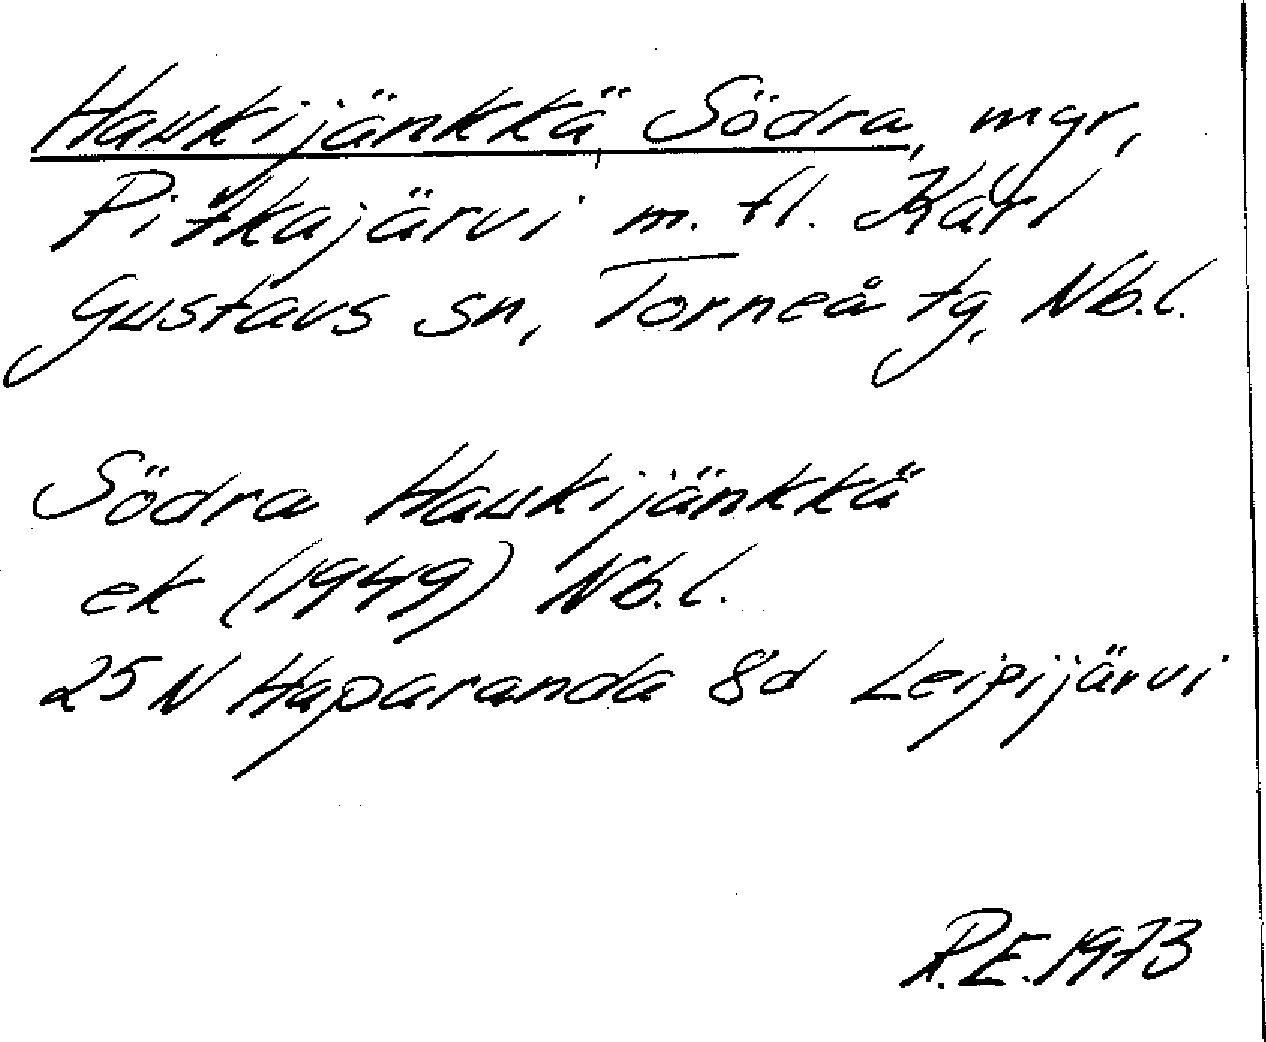 Haukijänkkä, Södra, mgr,
Pitkajärvi m. fl. Karl
Gustavs sn, Torneå tg, Nb.l.
Södra Haukijänkkä
ek (1949) Nb.l.
25 N Haparanda 8d Leipijärvi
R.E. 1973